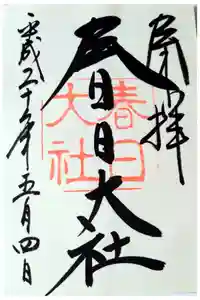 奉拝
春日大社
平成三十年五月四日
春日
大社